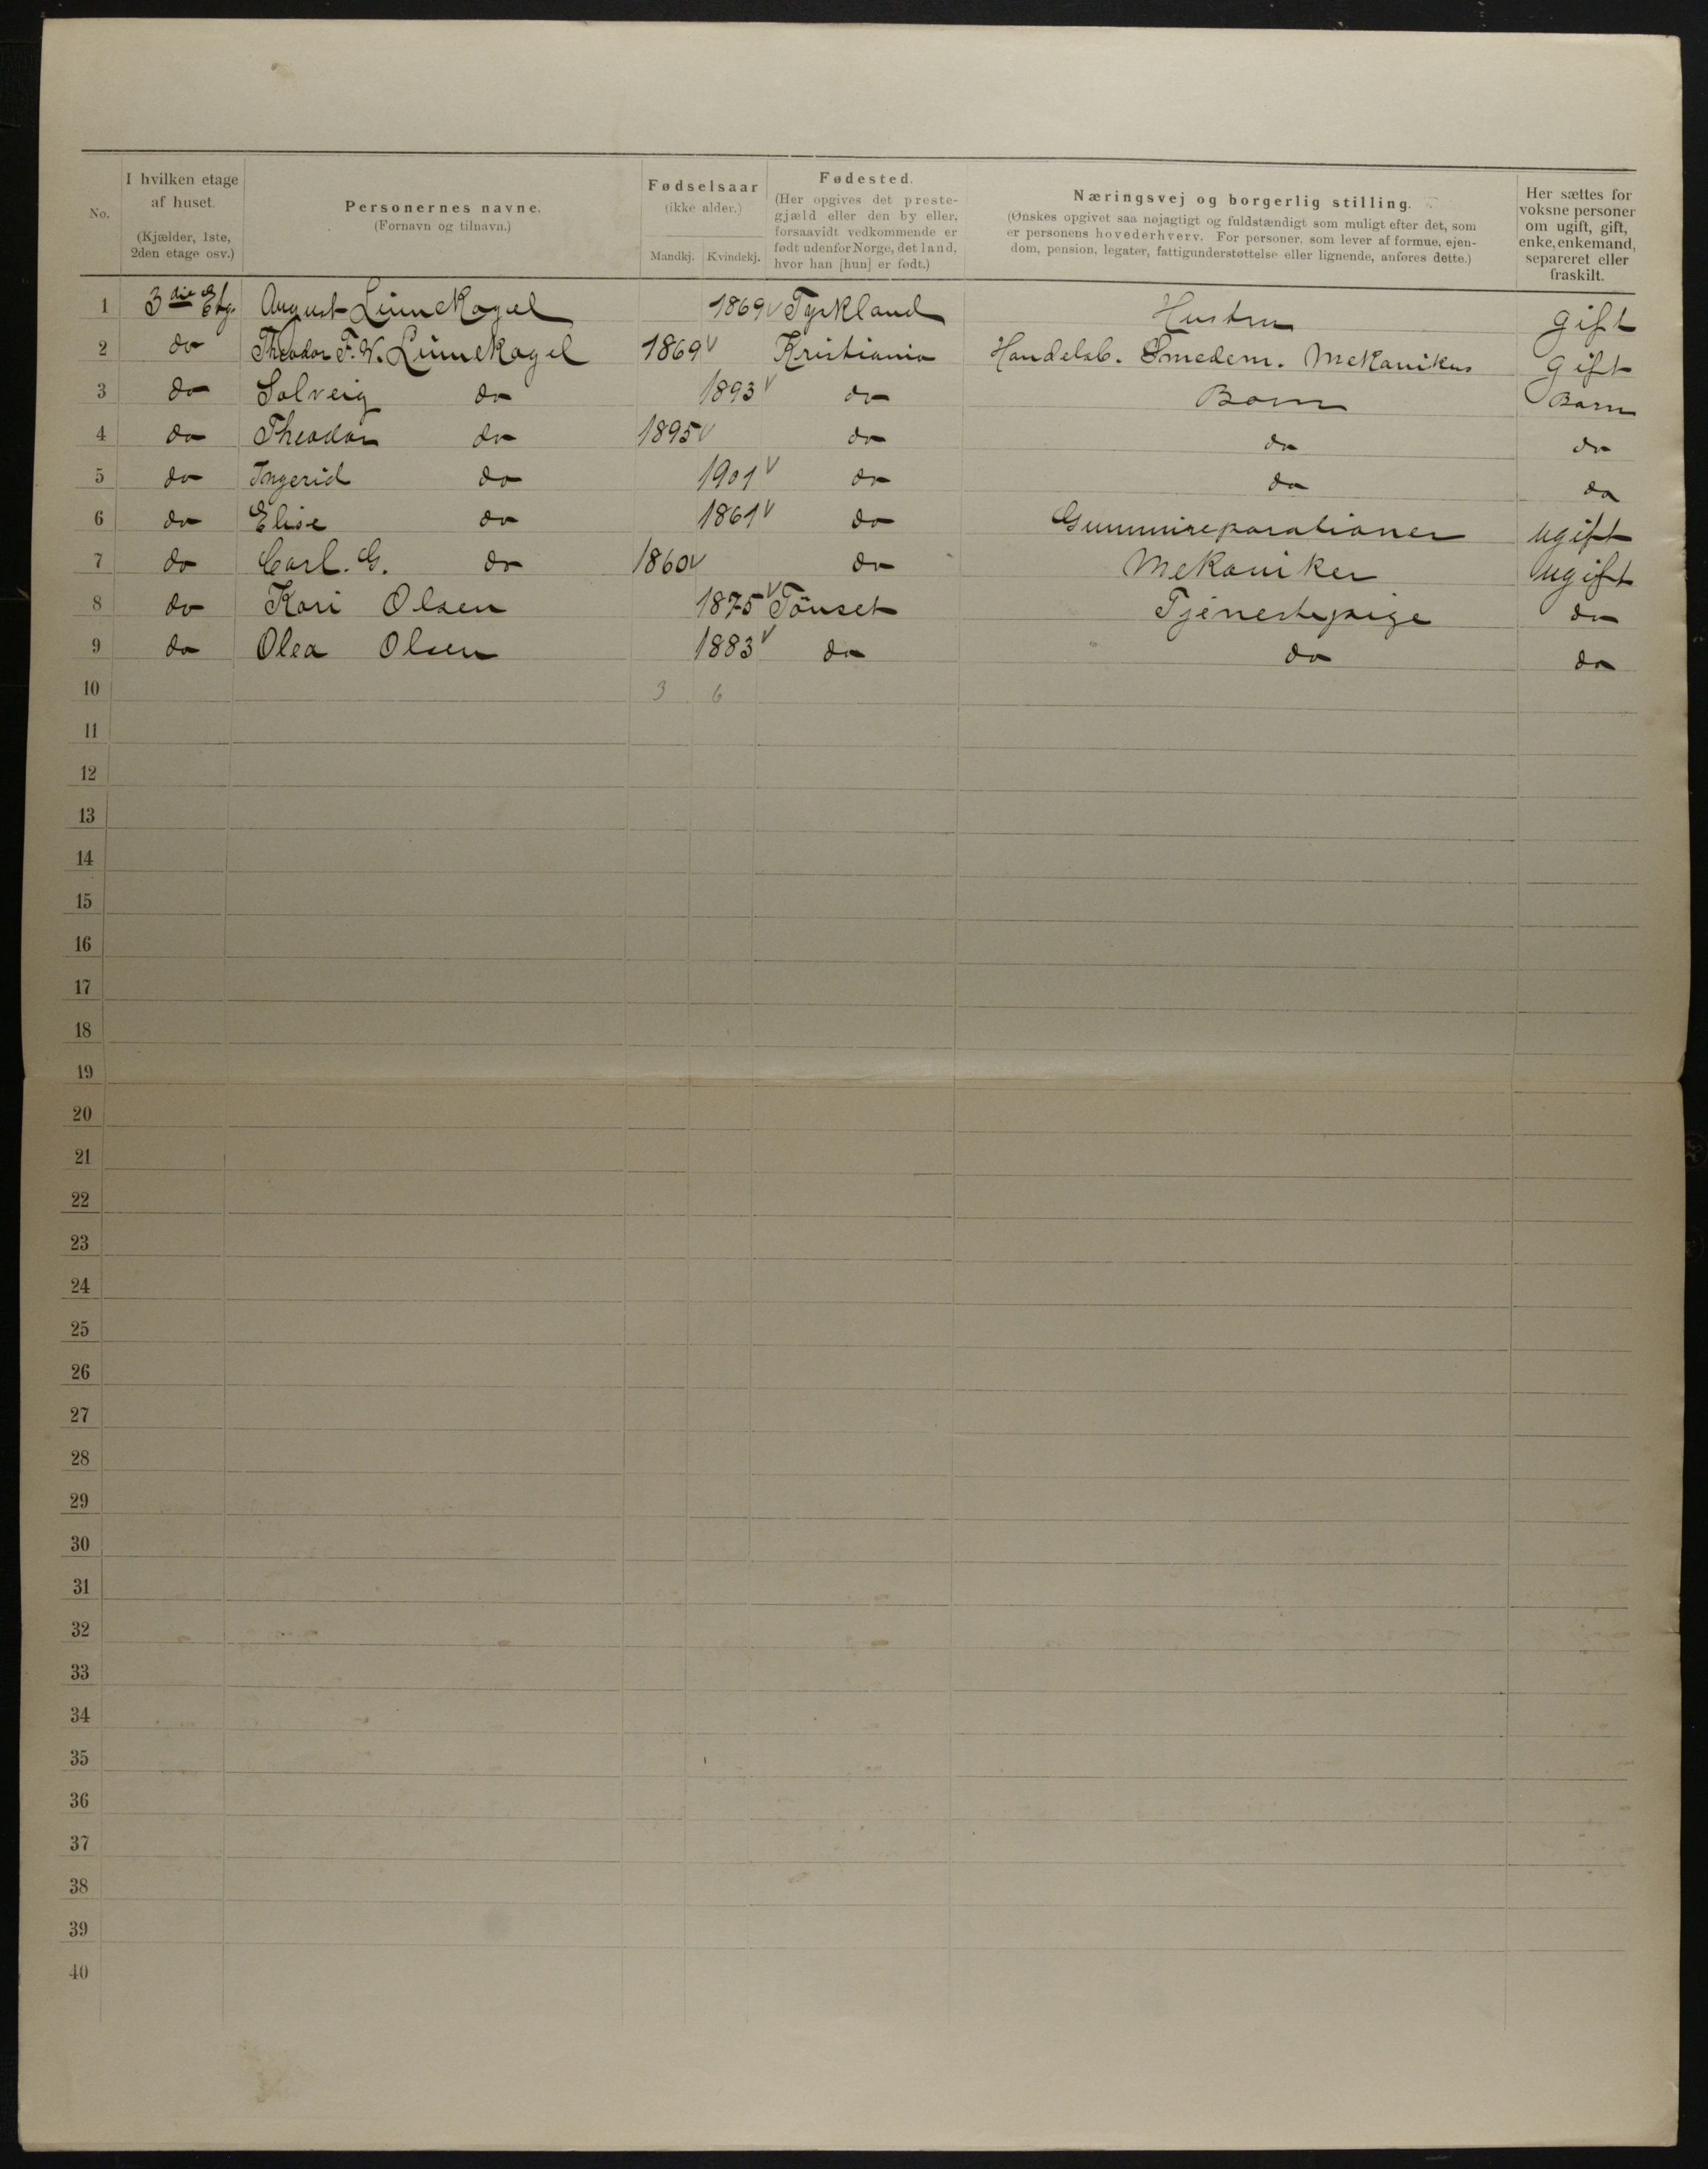 No. | I hvilken etage af huset. (Kjælder, 1ste, 2den etage osv.) | Personernes navne. (Fornavn og tilnavn.) | Fødselsaar (ikke alder.) Mandkj. Kvindekj. | Fødested. (Her opgives det prestegjæld eller den by eller, forsaavidt vedkommende er født udenfor Norge, det land, hvor han [hun] er født.) | Næringsvej og borgerlig stilling. (Ønskes opgivet saa nøjagtigt og fuldstændigt som muligt efter det, som er personens hovederhverv. For personer, som lever af formue, ejendom, pension, legater, fattigunderstøttelse eller lignende, anføres dette.) | Her sættes for voksne personer om ugift, gift, enke, enkemand, separeret eller fraskilt.
1 3die Etg. August Lünekogel 1869 v Tyskland Hustru gift
2 do Theodor F. W. Lünekogel 1869 v Kristiania Handelsb. Smedem. Mekanikus gift
3 do Solveig do 1893 v do Barn Barn
4 do Theodor do 1895 v do do do
5 do Ingerid do 1901 v do do do
6 do Elise do 1861 v do Gummireparationer ugift
7 do Carl. G. do 1860 v do Mekaniker ugift
8 do Kari Olsen 1875 v Tönset Tjenestepige do
9 do Olea Olsen 1883 v do do do
10 3 6
11
12
13
14
15
16
17
18
19
20
21
22
23
24
25
26
27
28
29
30
31
32
33
34
35
36
37
38
39
40